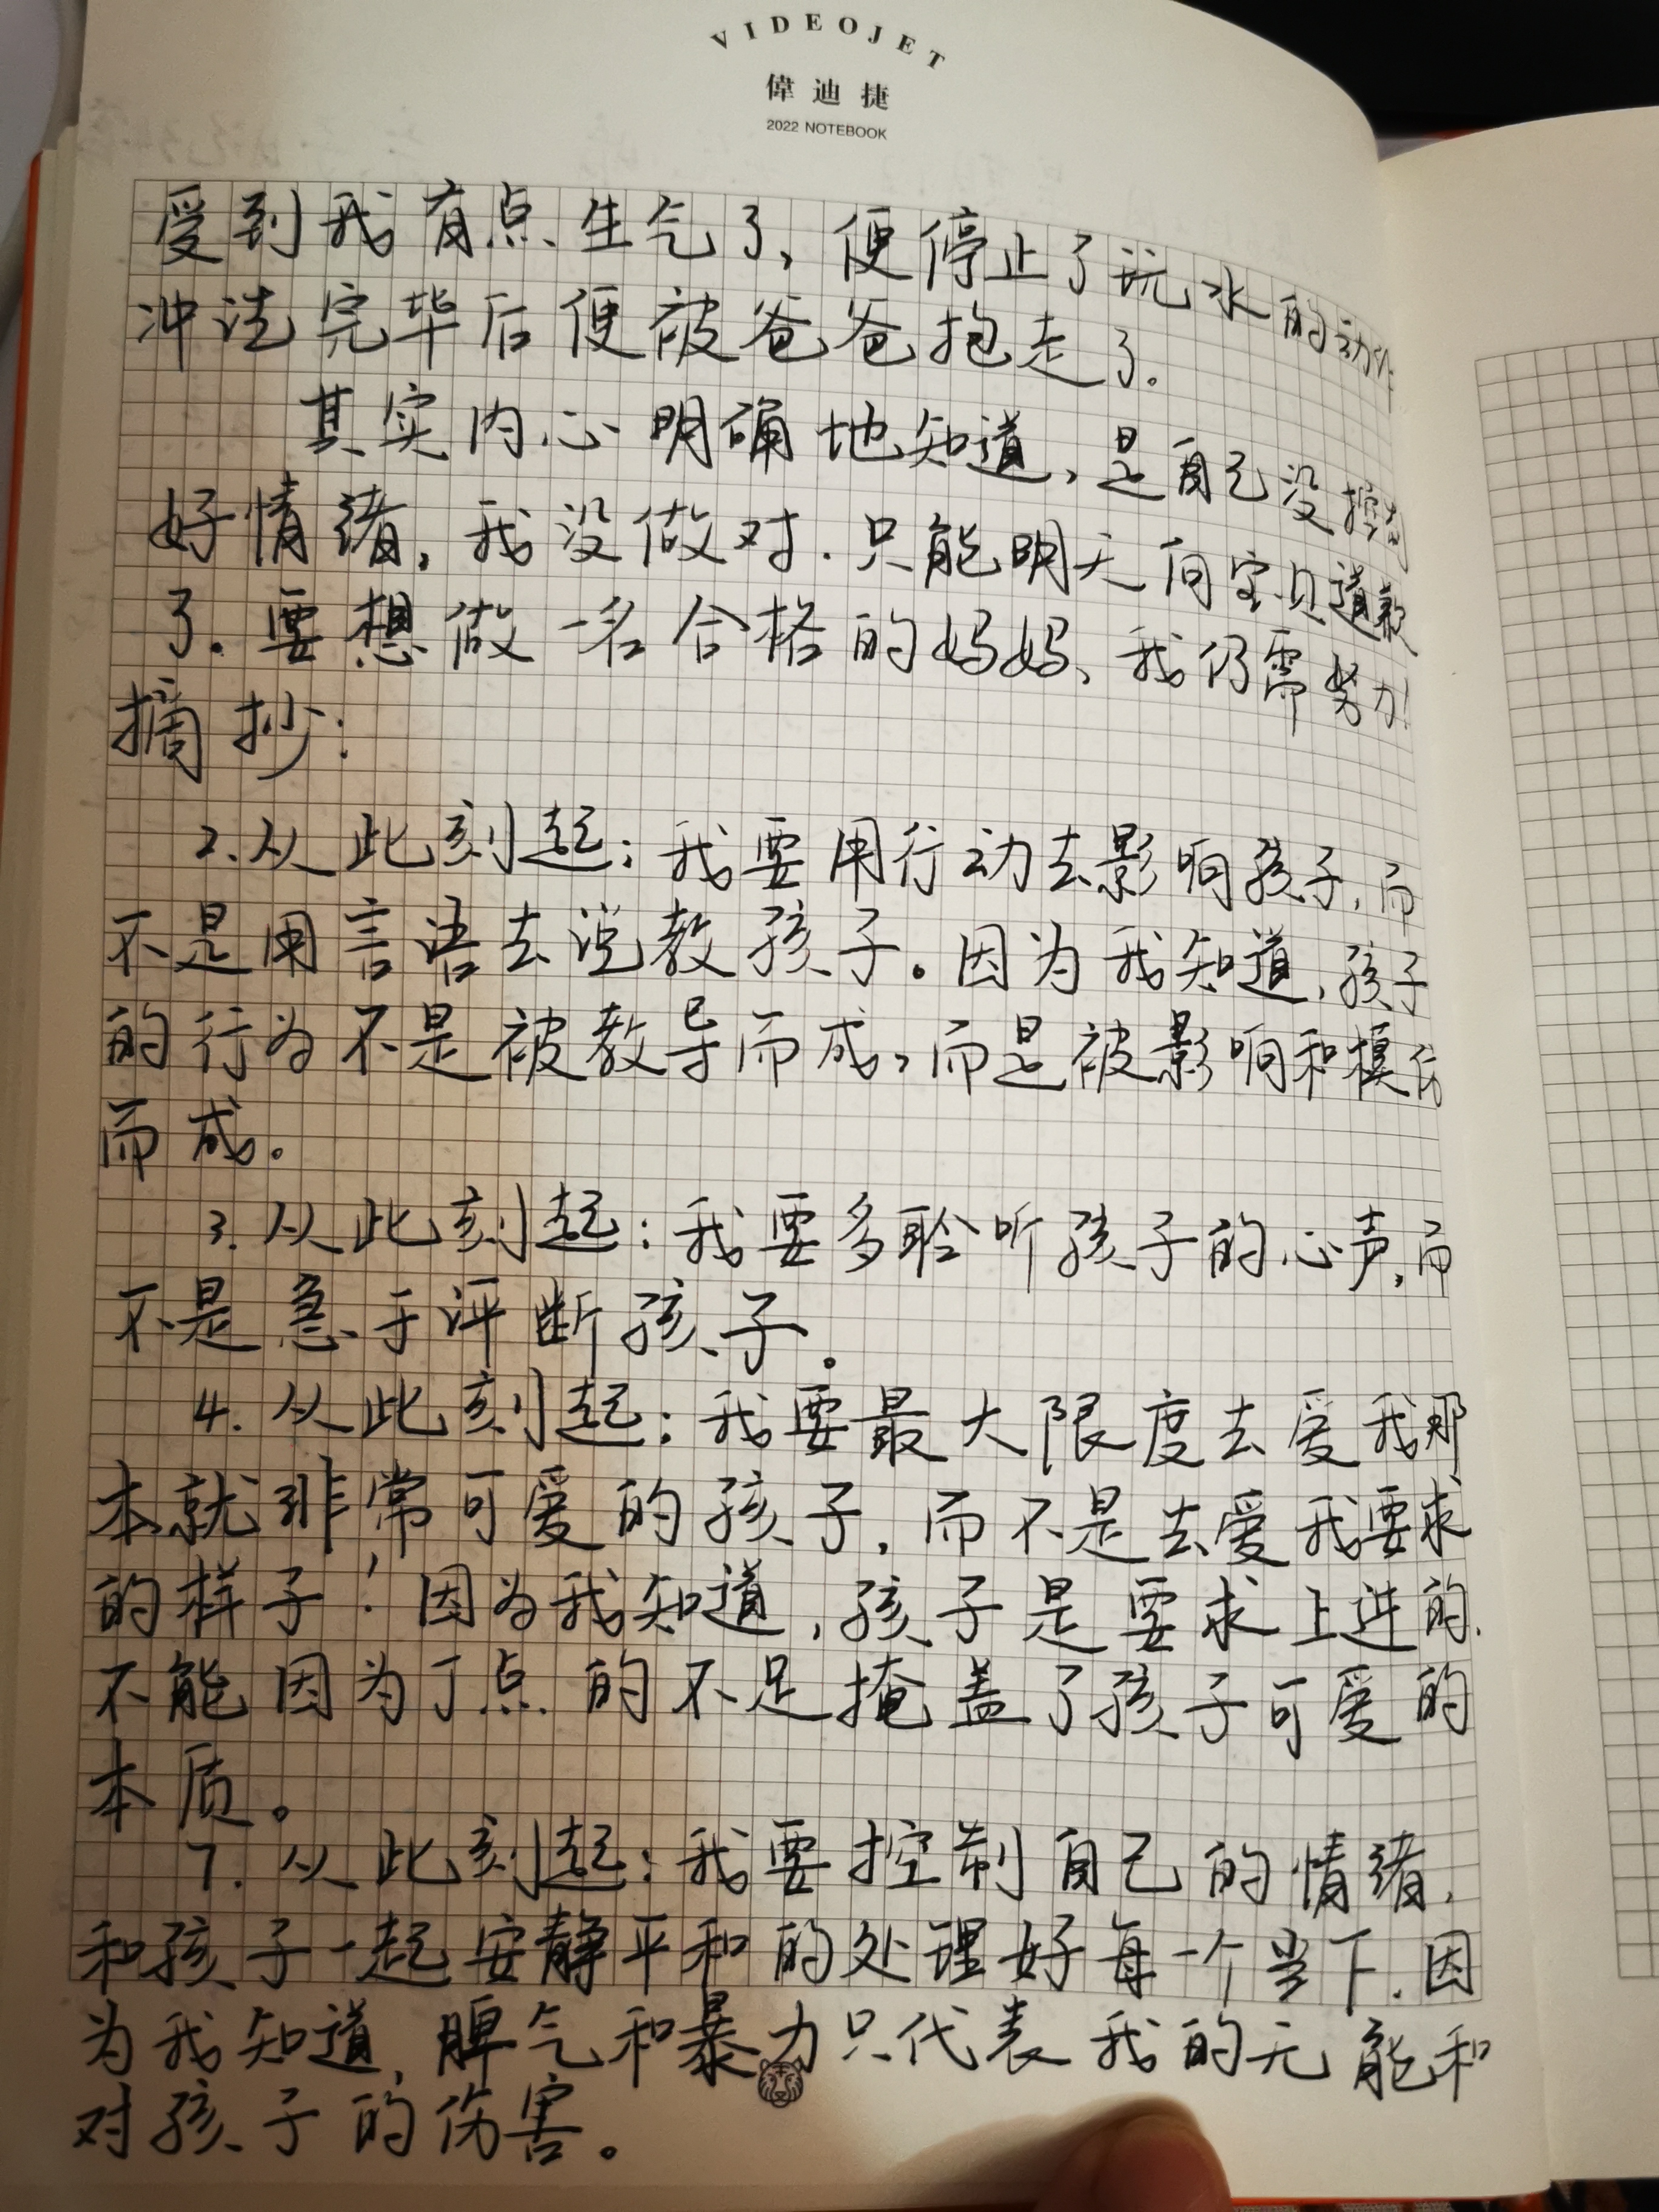 VIDEOJET
偉迪捷
2022 NOTEBOOK
受到我有点生气了,便停止了玩水的动作
冲洗完毕后便被爸爸抱走了。
其实内心明确地知道,是自己没控制
好情绪,我没做对.只能明天向宝贝道歉
了.要想做一名合格的妈妈、我仍需努力!
摘抄:
2.从此刻起:我要用行动去影响孩子,而
不是用言语去说教孩子。因为我知道,孩子
的行为不是被教导而成,而是被影响和模仿
而成。
3.从此刻起:我要多聆听孩子的心声,而
不是急于评断孩子.
4.从此刻起:我要最大限度去爱我那
本就非常可爱的孩子,而不是去爱我要求
的样子!因为我知道,孩子是要求上进的.
不能因为丁点的不足掩盖了孩子可爱的
本质。
7.从此刻起:我要控制自己的情绪,
和孩子一起安静平和的处理好每一个当下.因
为我知道,脾气和暴力只代表我的无能和
对孩子的伤害。